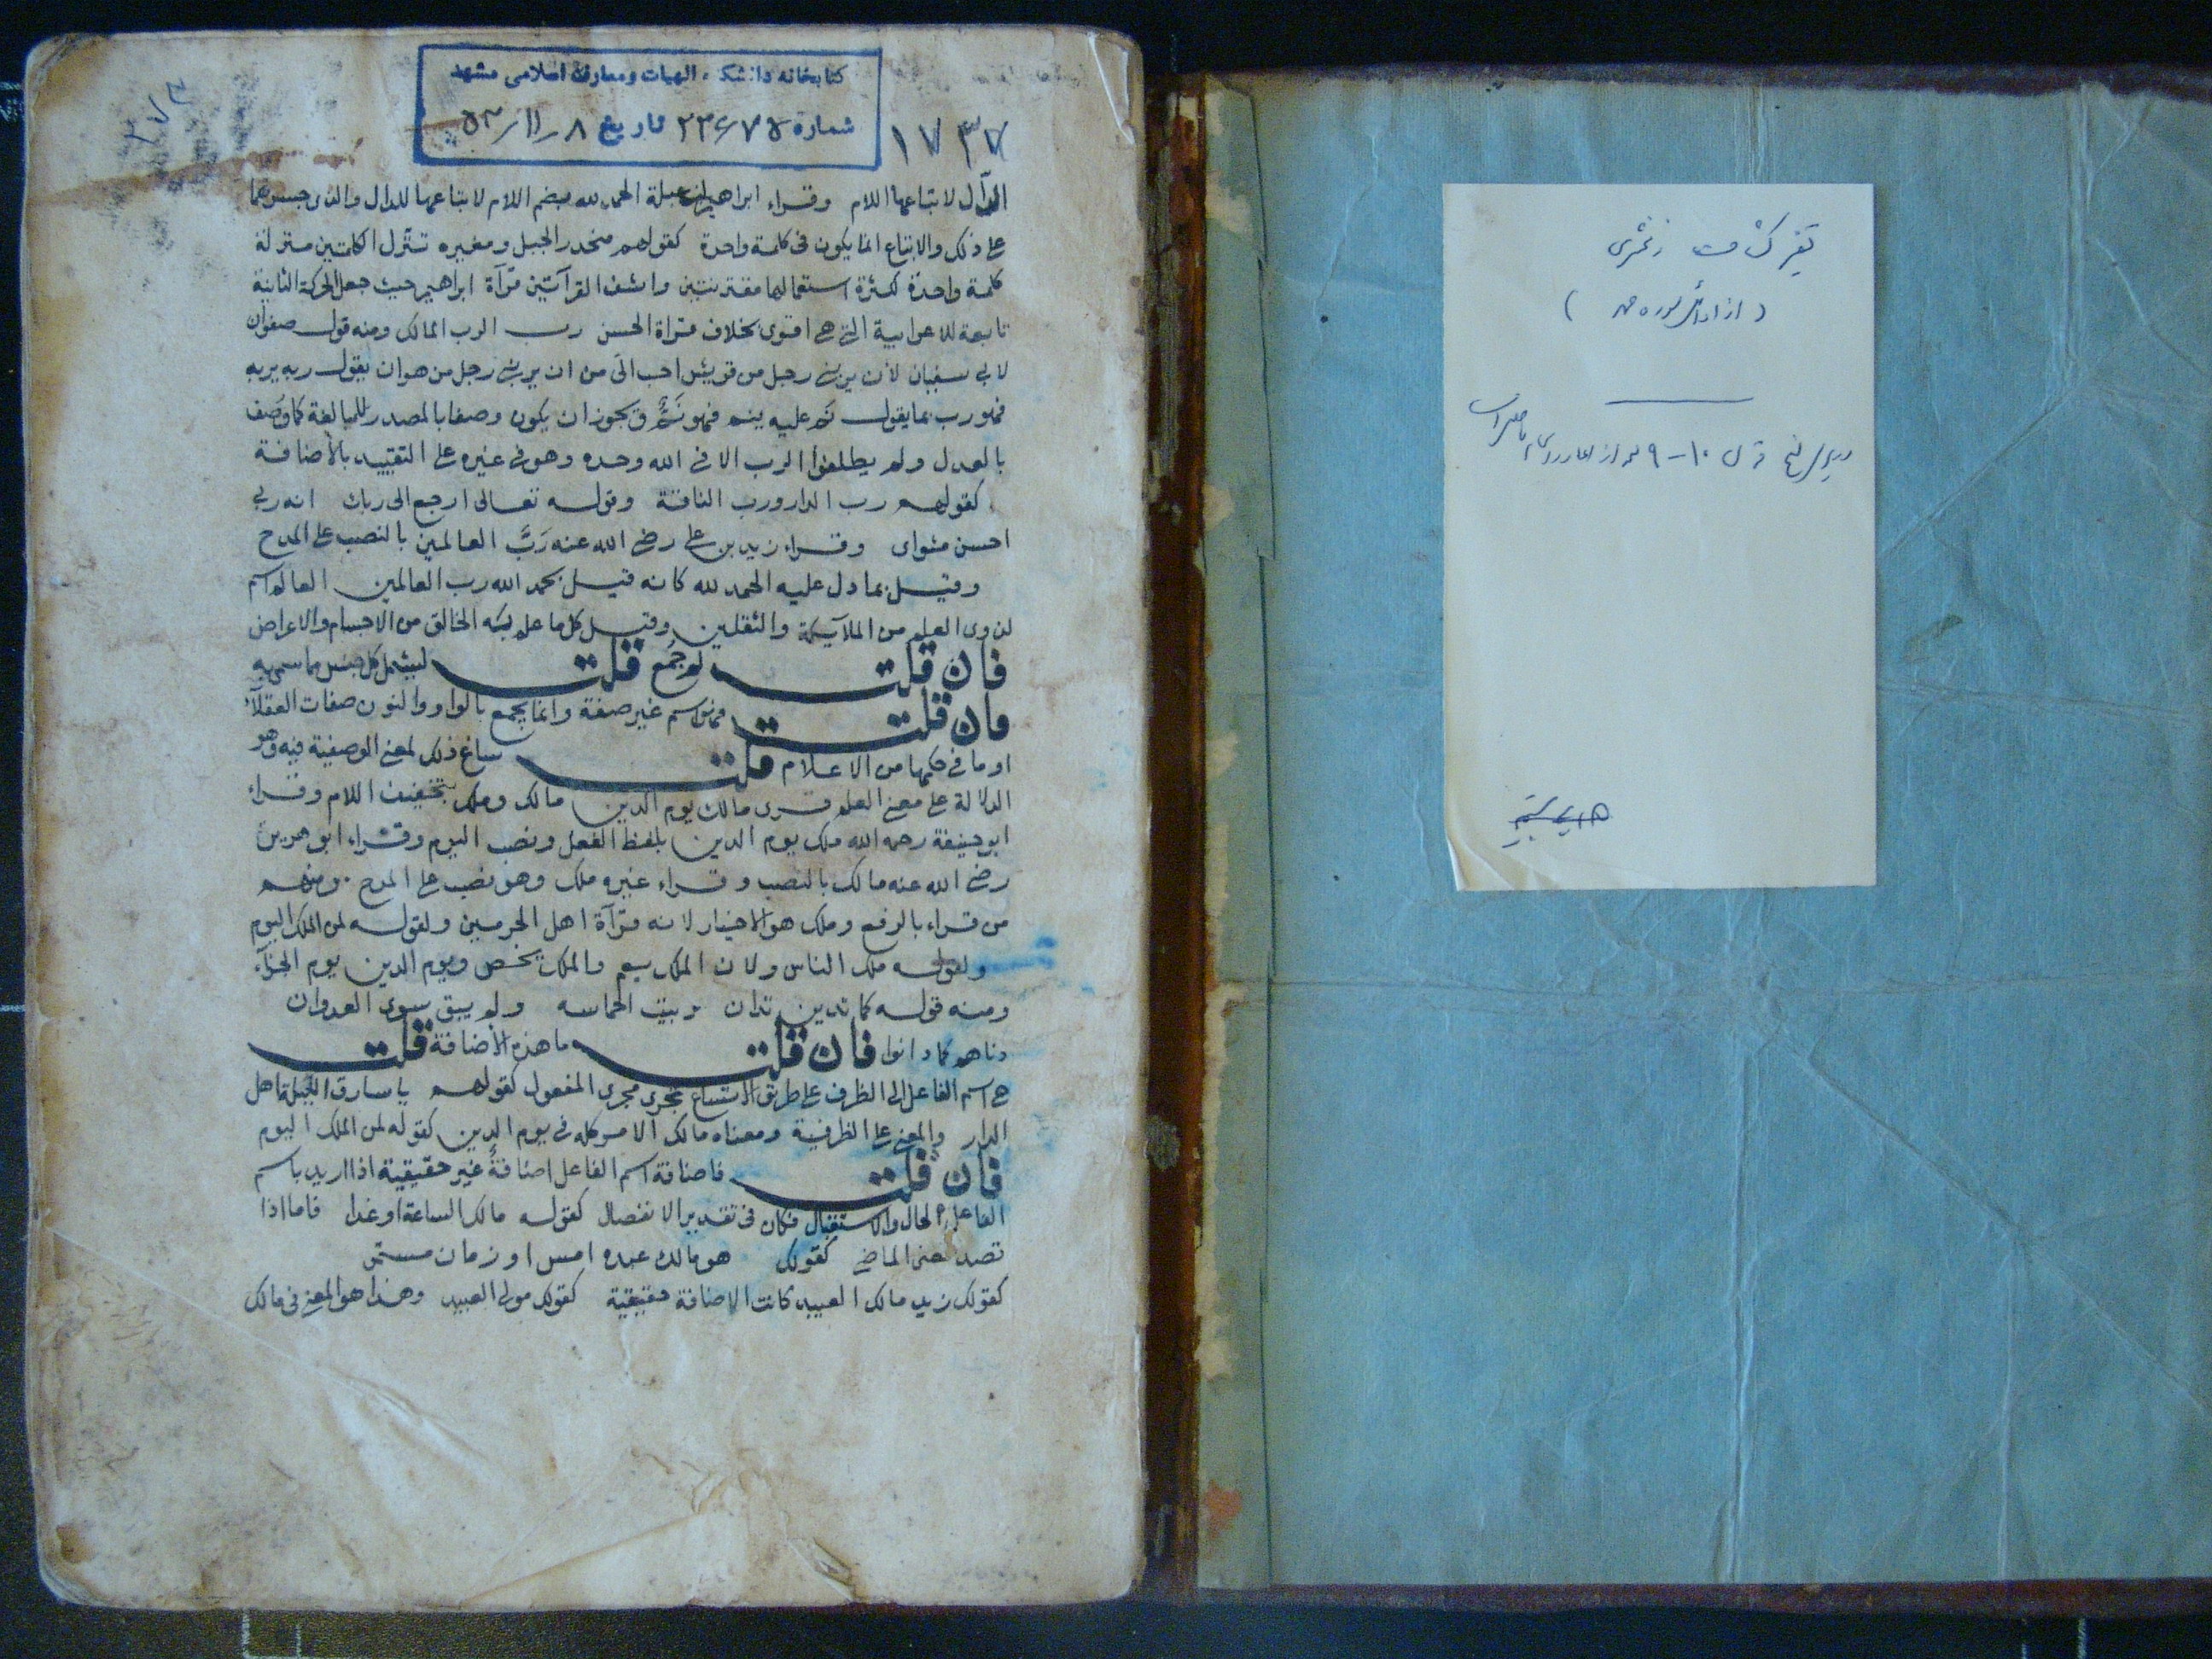 کتابخانه دانشکده الهیات ومعارف اسلامی مشهد
شماره ۲۳۶۷۵ تاریخ ۸ /۱۱/ ۵۳
۱۷۳۷
الدال لاتباعها اللام وقراء ابراهيم بن عبلة الحمد لله بضم اللام لاتباعها للدال والذى جسرهما
على ذلك والاتباع انما يكون فى كلمة واحدة كقولهم منحدر الجبل ومغيره تنزل الكلمتين منزلة
كلمة واحدة لكثرة استعمالها مقترنتين واشف القرآتين قرآة ابراهيم حيث جعل الحركة الثانية
تابعة للاعرابية التى هى اقوى بخلاف قراة الحسن رب الرب المالك ومنه قول صفوان
لابى سفيان لأن يربنى رجل من قريش احب الىّ من ان يربنى رجل من هوازن يقول ربه يربه
فهو رب بما يقول نم عليه ينم فهو نمٌّ ويجوز ان يكون وصفا بالمصدر للمبالغة كما وصف
بالعدل ولم يطلقوا الرب الا فى الله وحده وهو فى غيره على التقييد بالأضافة
كقولهم رب الدار ورب الناقة وقوله تعالى ارجع الى ربك انه ربى
احسن مثواى وقراء زيد بن على رضى الله عنه رَبَّ العالمين بالنصب على المدح
وقيل بما دل عليه الحمد لله كانه قيل بحمد الله رب العالمين العالم اسم
لذوى العلم من الملآيكة والثقلين وقيل كل ما علم به الخالق من الاجسام والاعراض
فان قلت لم جُمع قلت ليشمل كل جنس مما سمى به
فان قلت فهو اسم غير صفة وانما يجمع بالواو والنون صفات العقلآء
او ما فى حكمها من الاعلام قلت ساغ ذلك لمعنى الوصفية فيه وهو
الدلالة على معنى العلم قرى مالك يوم الدين مالك وملك بتخفيف اللام وقراء
ابو حنيفة رحمه الله ملك يوم الدين بلفظ الفعل ونصب اليوم وقراء ابو هريرة
رضى الله عنه مالك بالنصب وقراء غيره ملك وهو نصب على المدح ومنهم
من قراء بالرفع وملك هو الاختيار لانه قرآة اهل الحرمين ولقوله لمن الملك اليوم
ولقوله ملك الناس ولان الملك يعم والملك يخص ويوم الدين يوم الجزآء
ومنه قوله كما تدين تدان وبيت الحماسه ولم يبق سوى العدوان
دناهم كما دانوا فان قلت ما هذه الأضافة قلت
هى اسم الفاعل الى الظرف على طريق الاتساع مجرى مجرى المفعول كقولهم يا سارق الليلة اهل
الدار والمعنى على الظرفية ومعناه مالك الامر كله فى يوم الدين كقوله لمن الملك اليوم
فان قلت فاضافة اسم الفاعل اضافةٌ غير حقيقية اذا اريد باسم
الفاعل الحال والاستقبال فكان فى تقدير الانفصال كقوله مالك الساعة او غدا فاما اذا
قصد معنى الماضى كقولك هو مالك عبده امس او زمان مستمر
كقولك زيد مالك العبيد كانت الاضافة حقيقية كقولك مولى العبيد وهذا هو المعنى فى مالك
تفسیر کشاف زمخشری
( از اوائل سوره حمد )